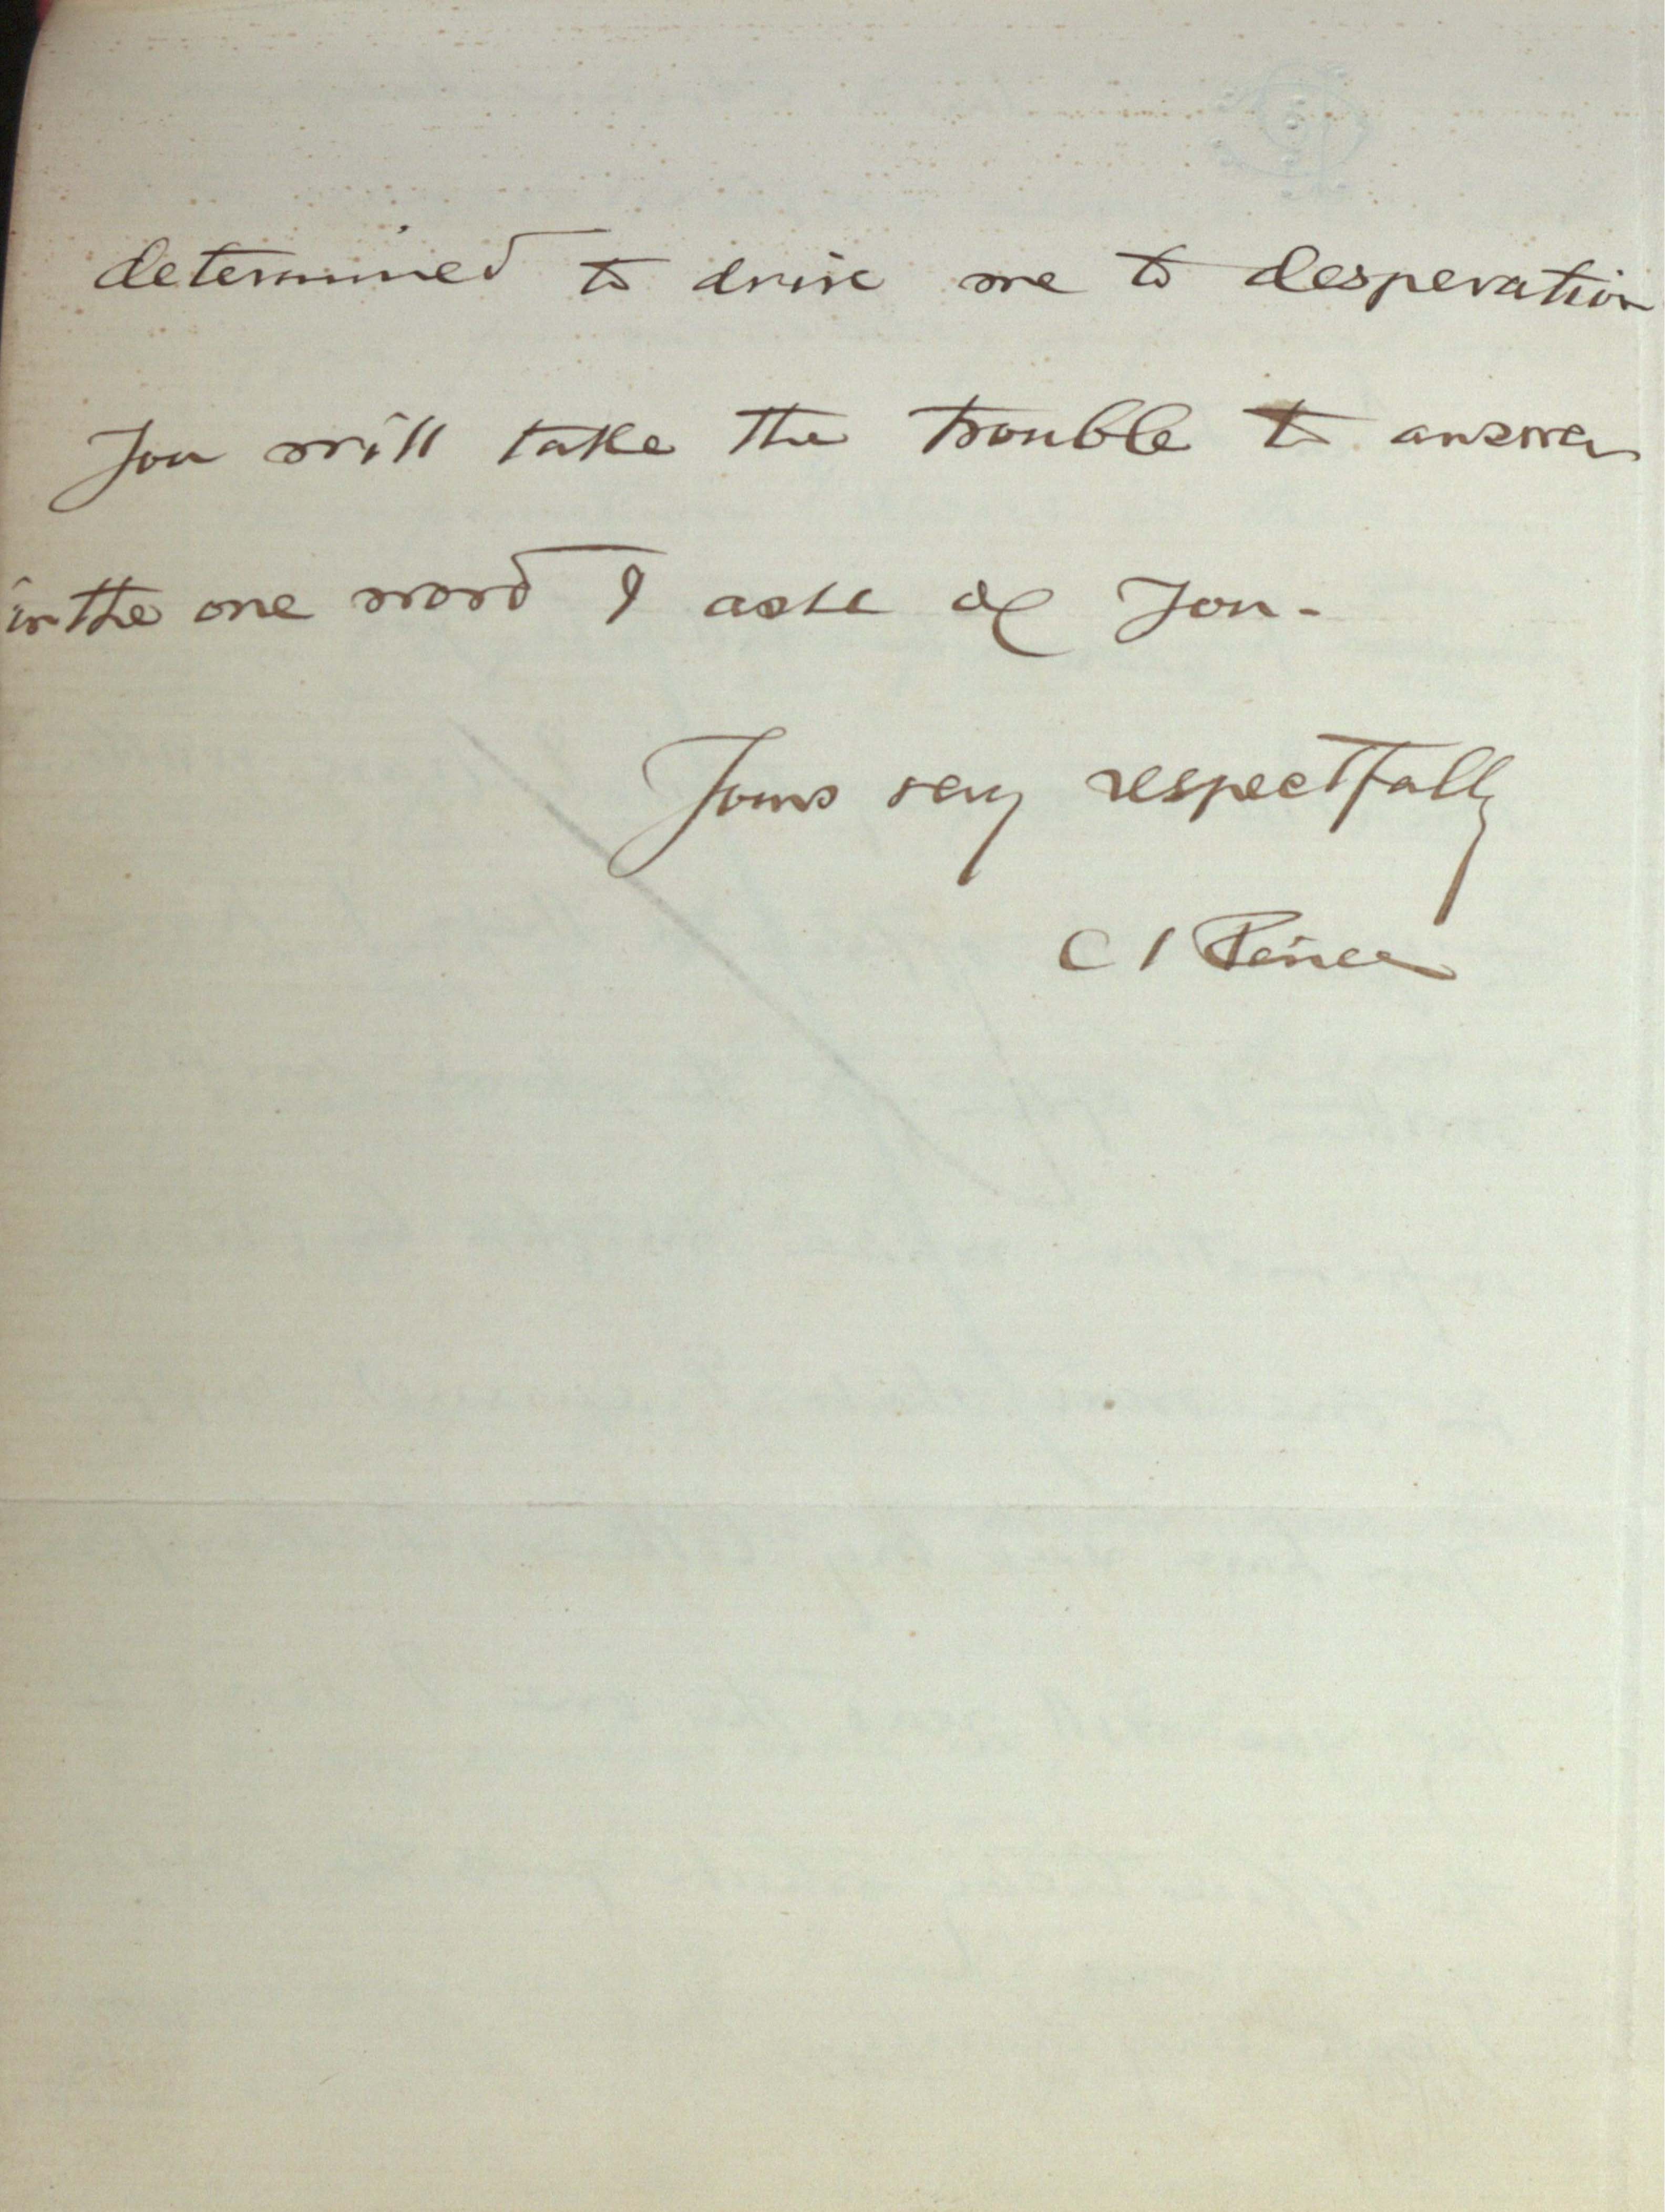 determined to drive me to desperation
you will take the trouble to answer
in the one word I ask of you-
Yours very respectfully
C S Peirce